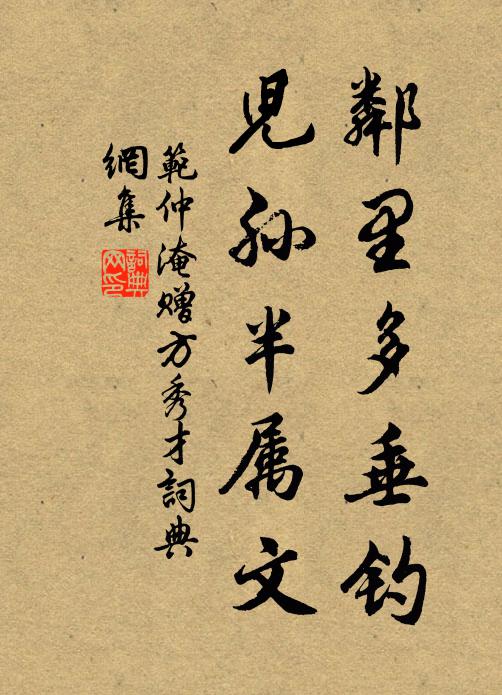 鄰里多垂钓
兒孙半属文
範仲淹赠方秀才詞典
網集
詞典
网印